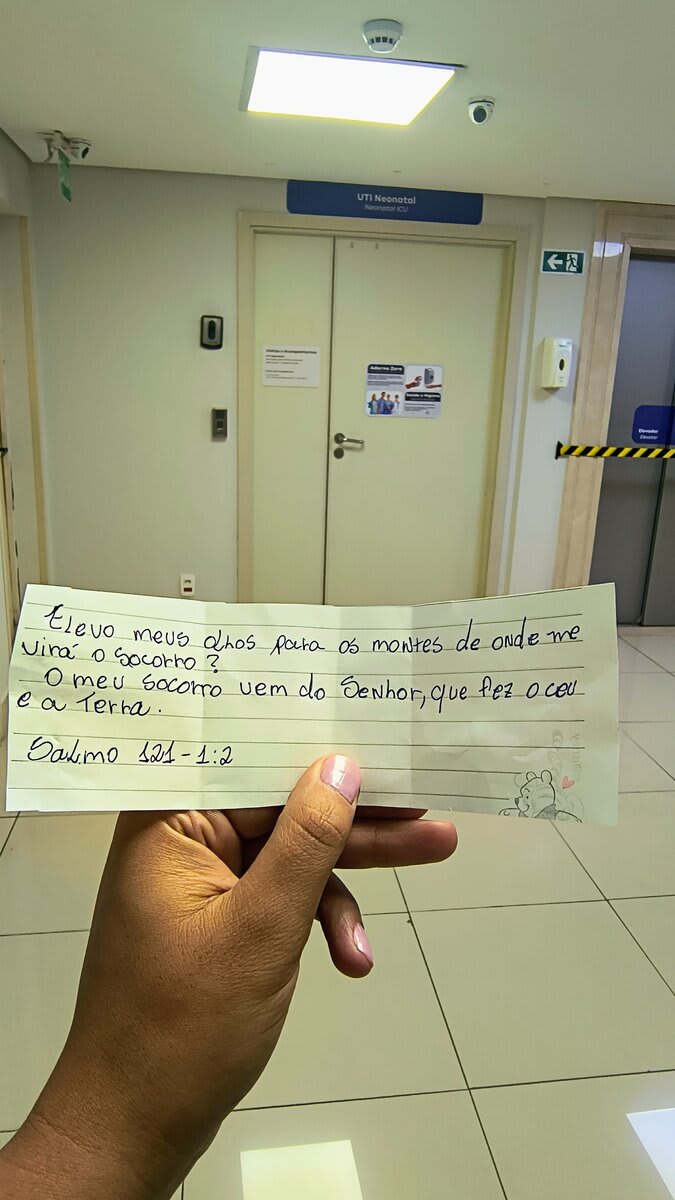 UTI Neonatal
Neonatal ICU
Adorno Zero
Elevador
Elevator
Elevo meus olhos para os montes de onde me
virá o socorro?
O meu socorro vem do Senhor, que fez o ceu
e a Terra.
Salmo 121-1:2